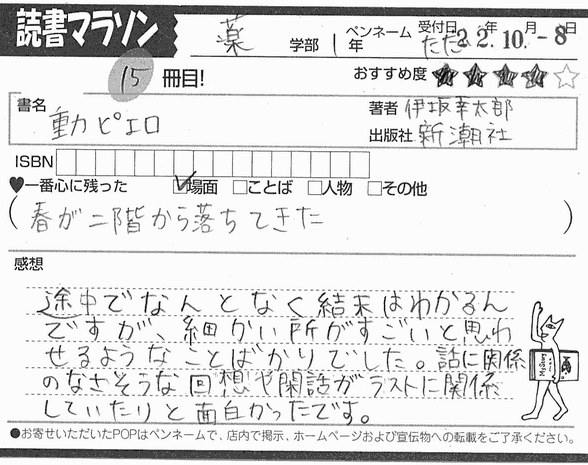 読書マラソン
薬 学部 1年 ペンネーム たた 受付日 22年10月-8日
15 冊目! おすすめ度 ★★★★☆
書名 著者 伊坂幸太郎
動力ピエロ 出版社 新潮社
ISBN
♥一番心に残った ☑場面 □ことば □人物 □その他
(春が二階から落ちてきた)
感想
途中でなんとなく結末はわかるん
ですが、細かい所がすごいと思わ
せるようなことばかりでした。話に関係
のなさそうな回想や閑話がラストに関係
していたりと面白かったです。
●お寄せいただいたPOPはペンネームで、店内で掲示、ホームページおよび宣伝物への転載をご了承ください。